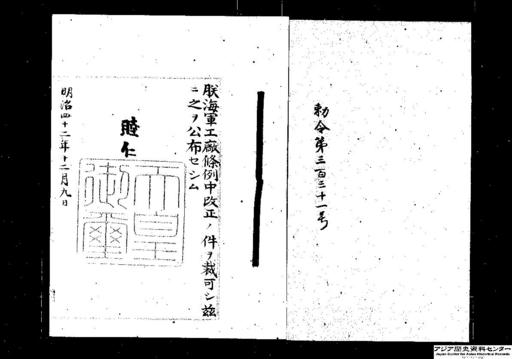 勅令第三百三十一号
朕海軍工廠條例中改正ノ件ヲ裁可シ茲
ニ之ヲ公布セシム
睦仁
天皇
御璽
明治四十二年十二月九日
アジア歴史資料センター
Japan Center for Asian Historical Records